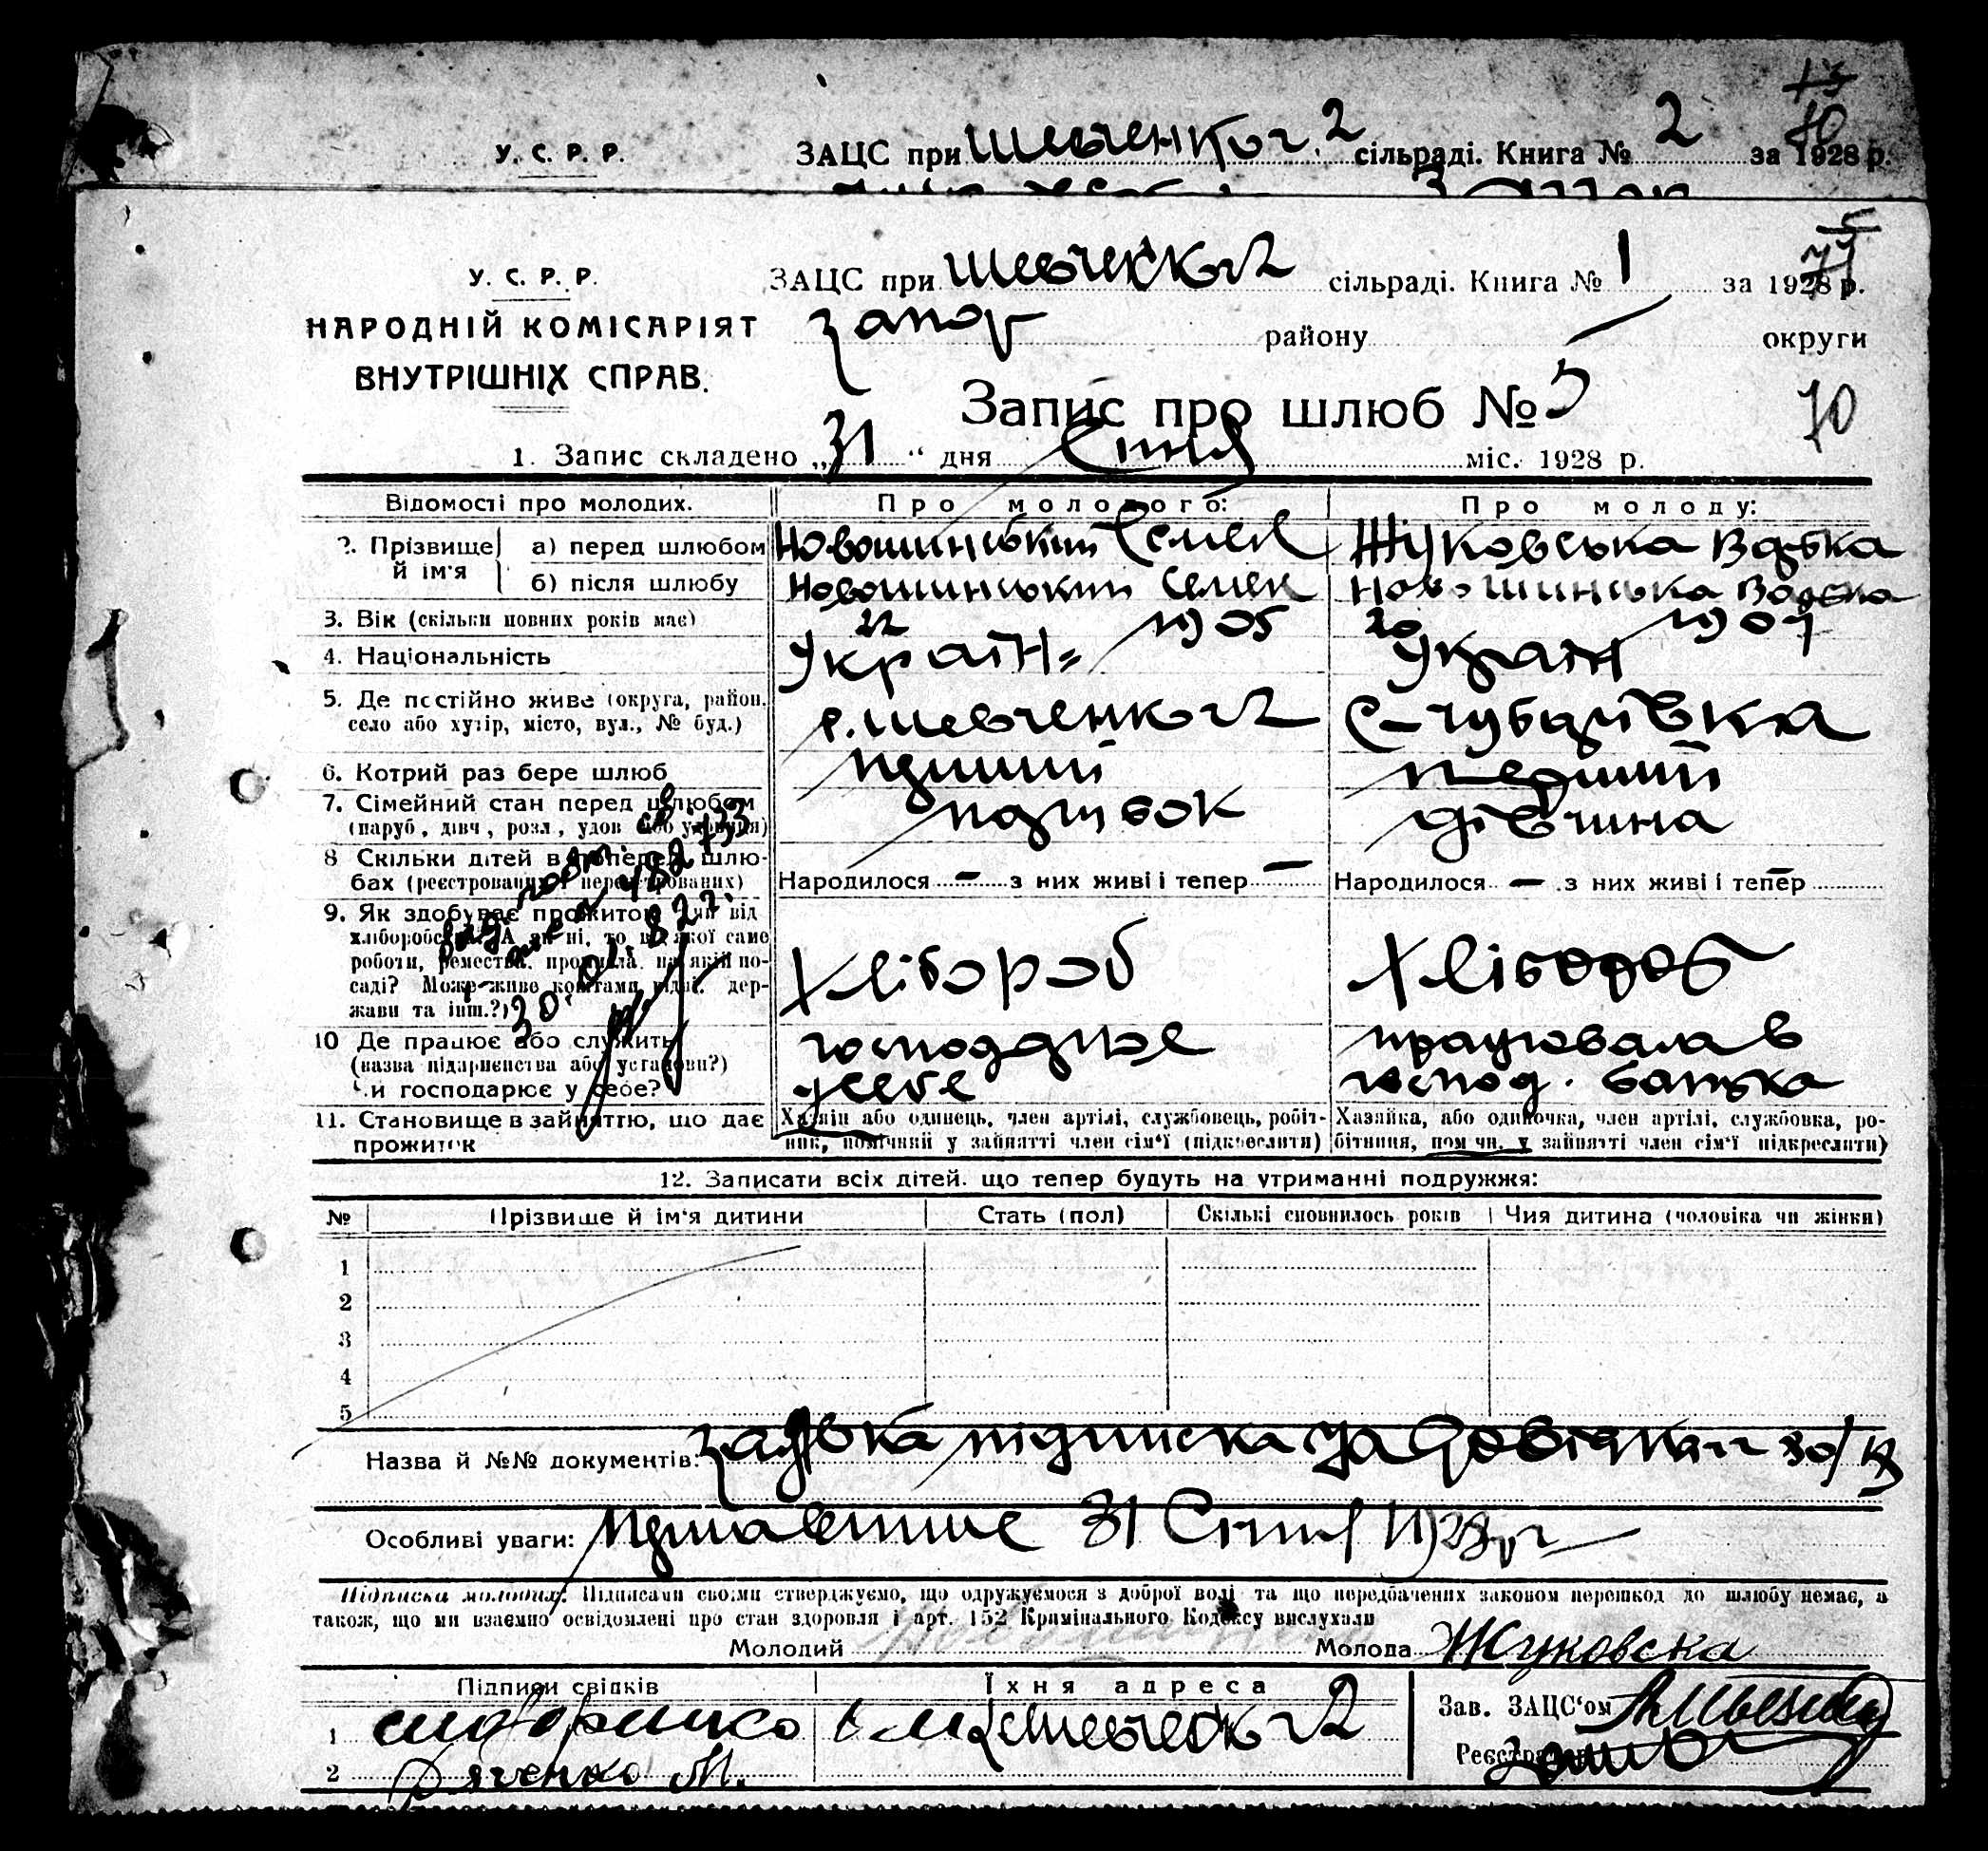 У. С. Р. Р. ЗАЦС при Шевченков. 2 сільраді. Книга № 2 за 1928 р.
У. С. Р. Р. ЗАЦС при Шевченков 2 сільраді. Книга № 1 за 1928 р.
НАРОДНІЙ КОМІСАРІЯТ
ВНУТРІШНІХ СПРАВ.
Запор району округи
Запис про шлюб № 5
70
1. Запис складено „31“ дня Січня міс. 1928 р.
Відомості про молодих. Про молодого: Про молоду:
2. Прізвище й ім'я
а) перед шлюбом Новошинський Семен Жуковська
б) після шлюбу Новошинський Семен Новошинська
3. Вік (скільки повних років має) 22 1905 20 1907
4. Національність Україн= Україн
5. Де постійно живе (округа, район, село або хутір, місто, вул., № буд.) с. Шевченков 2 С-Чубаївка
6. Котрий раз бере шлюб перший перший
7. Сімейний стан перед шлюбом (паруб., дівч., розл., удов. або удовиця) парубок дівчина
8 Скільки дітей в попередн. шлюбах (реєстрованих і нереєстрованих) Народилося — з них живі і тепер — Народилося — з них живі і тепер —
9. Як здобуває прожиток, чи від хліборобства? А як ні, то від якої саме роботи, ремества, промисла, на якій посаді? Може живе коштами рідні, держави та інш.?) Хлібороб Хлібороб
10 Де працює або служить (назва підприємства або установи?) Чи господарює у себе? господарює у себе працювала в господ. батька
11. Становище в зайняттю, що дає прожиток
Хазяїн або одинець, член артілі, службовець, робітник, помічний у зайнятті член сім'ї (підкреслити)
Хазяйка, або одиночка, член артілі, службовка, робітниця, помічн. у зайнятті член сім'ї підкреслити)
12. Записати всіх дітей, що тепер будуть на утриманні подружжя:
№ Прізвище й ім'я дитини Стать (пол) Скількі сповнилось років Чия дитина (чоловіка чи жінки)
1
2
3
4
5
Назва й №№ документів: заявка підписка
Особливі уваги: 31 Січня 1928 р
Підписка молодих: Підписами своїми стверджуємо, що одружуємося з доброї волі та що передбачених законом перешкод до шлюбу немає, а
також, що ми взаємно освідомлені про стан здоровля і арт. 152 Кримінального Кодексу вислухали
Молодий Молода Жуковска
Підписи свідків Їхня адреса Зав. ЗАЦС'ом
1
2 Дяченко М. Реєстратор